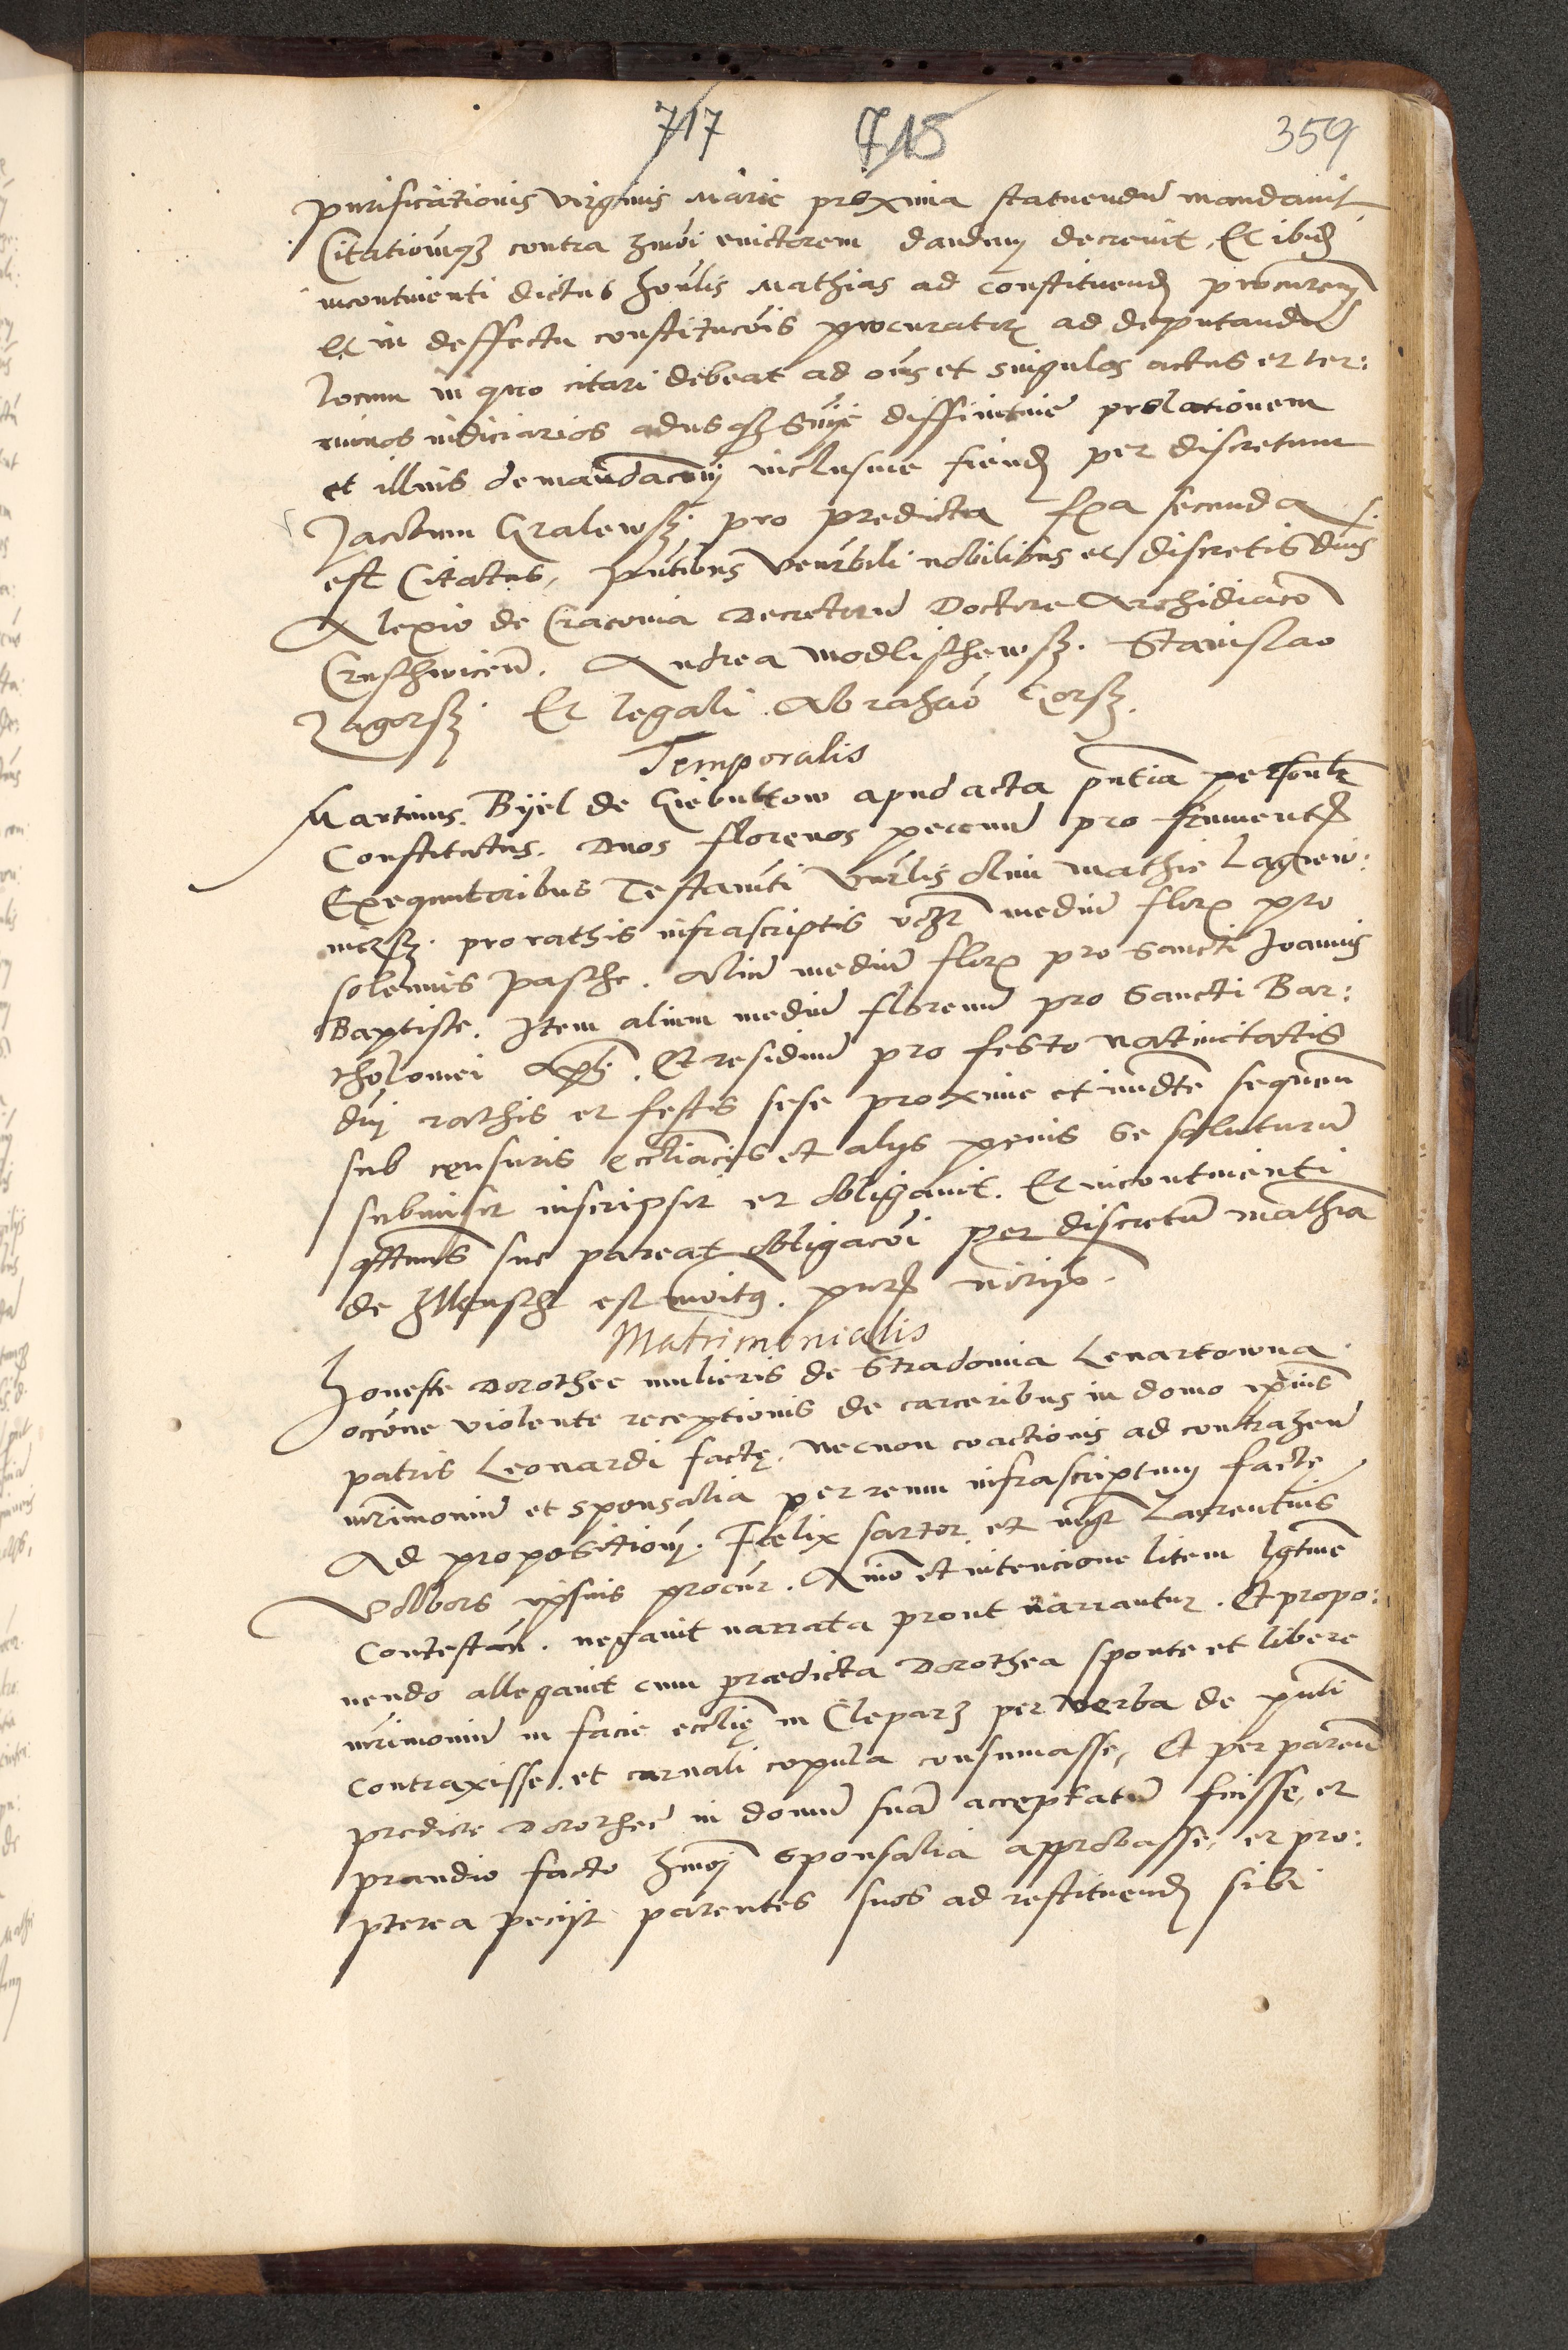 717 718 359
purificationis virginis Marie proxima statuendum mandavit
Citationemqz contra hmoi evictorem dandam decrevit, Et ibidem
incontinenti dictus honlis Mathias ad constituend procurorem
Et in deffectu constitucois procurator ad deputandum
locum in quo citari debeat ad oes et singulos actus et ter:
minos iudiciarios adusqz snie diffinitive prolationem
et illius demandacoem inclusive fiend per discretum
Jacobum Gralewskj pro predicta fria secunda
est Citatus, pntibus venrabili nobilibus et discretis dnis
Alexio de Cracovia Decretorum Doctore Archidiacono
Cruschvicen. Andrea Modlischewskj. Stanislao
Zagorskj Et legali Abrahamo Gorskj.
Temporalis
Martinus Byel de Giebultow apud acta pntia personlr
Constitutus. Duos florenos pecunie pro frumento
Exequutoribus Testamti venrlis olim Mathie Lagiew:
niczskj. pro rathis infrascriptis vczt medium flor pro
solennis Pasche. Alium medium flor pro sancti Joannis
Baptiste. Item alium medium florenum pro Sancti Bar:
tholomei Apli. Et residuum pro festo nativitatis
dni rathis et festis sese proxime et immdte sequen
sub censuris eccliacis et alys penis se soluturum
submisit inscripsit et obligavit. Et incontinenti
qtenus sue pareat obligacoi per discretum Mathiam
de est moitus. pntibus notriis.
Matrimonialis
Honeste Dorothee mulieris de Stradomia Lenartowna
occone violente receptionis de carceribus in domo ipsius
patris Leonardi factę. necnon coactionis ad contrahen
mrimonium et sponsalia per reum infrascriptum facte
Ad propositionem. Felix sartor et mgr Laurentius
Volbors ipsius procur. Animo et intencione litem lgtime
Contestan. negavit narrata prout narrantur. Et propo:
nendo allegavit cum prædicta Dorothea sponte et libere
mrimonium in facie ecclię in Cleparz per verba de pnti
contraxisse. et carnali copula consumasse, Et per paren
predicte Dorothee in domum suam acceptatum fuisse, et
prandio facto hmoi sponsalia approbasse, et pro:
pterea peciit parentes suos ad restituend sibi